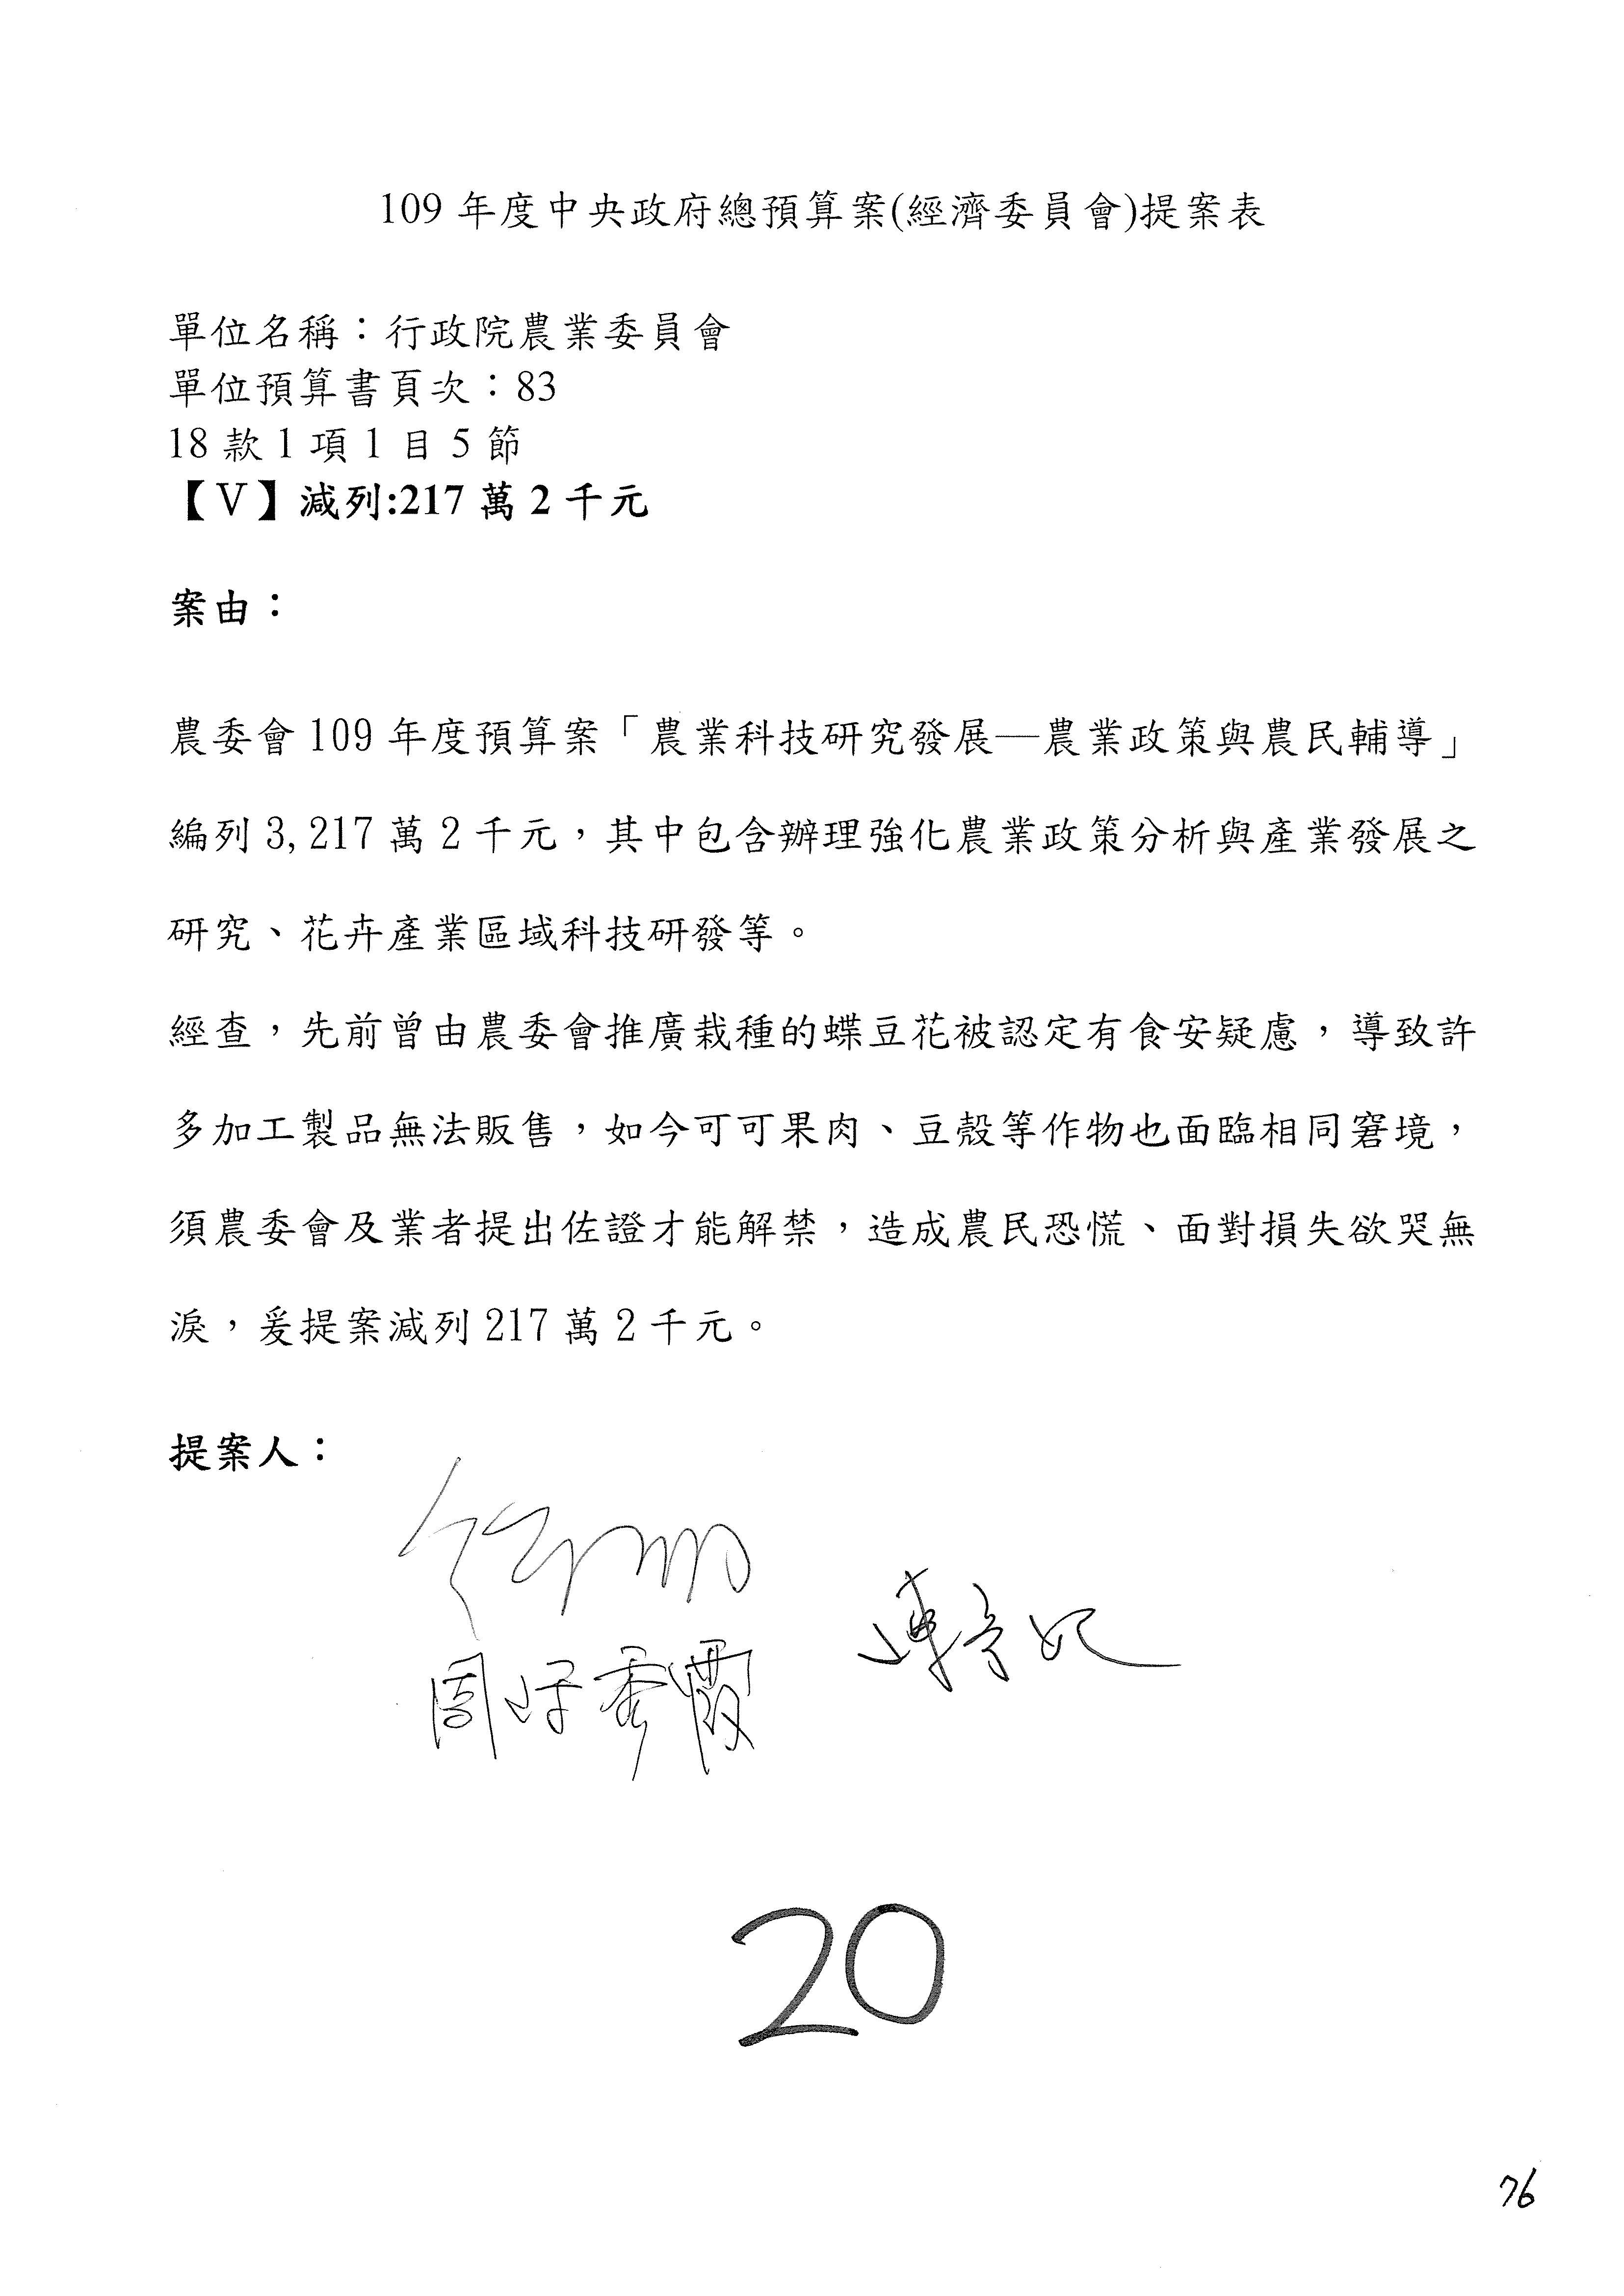 109 年度中央政府總預算案(經濟委員會)提案表
單位名稱：行政院農業委員會
單位預算書頁次：83
18 款 1 項 1 目 5 節
【V】減列:217 萬 2 千元
案由：
農委會 109 年度預算案「農業科技研究發展—農業政策與農民輔導」
編列 3,217 萬 2 千元，其中包含辦理強化農業政策分析與產業發展之
研究、花卉產業區域科技研發等。
經查，先前曾由農委會推廣栽種的蝶豆花被認定有食安疑慮，導致許
多加工製品無法販售，如今可可果肉、豆殼等作物也面臨相同窘境，
須農委會及業者提出佐證才能解禁，造成農民恐慌、面對損失欲哭無
淚，爰提案減列 217 萬 2 千元。
提案人：
周 秀霞
20
76